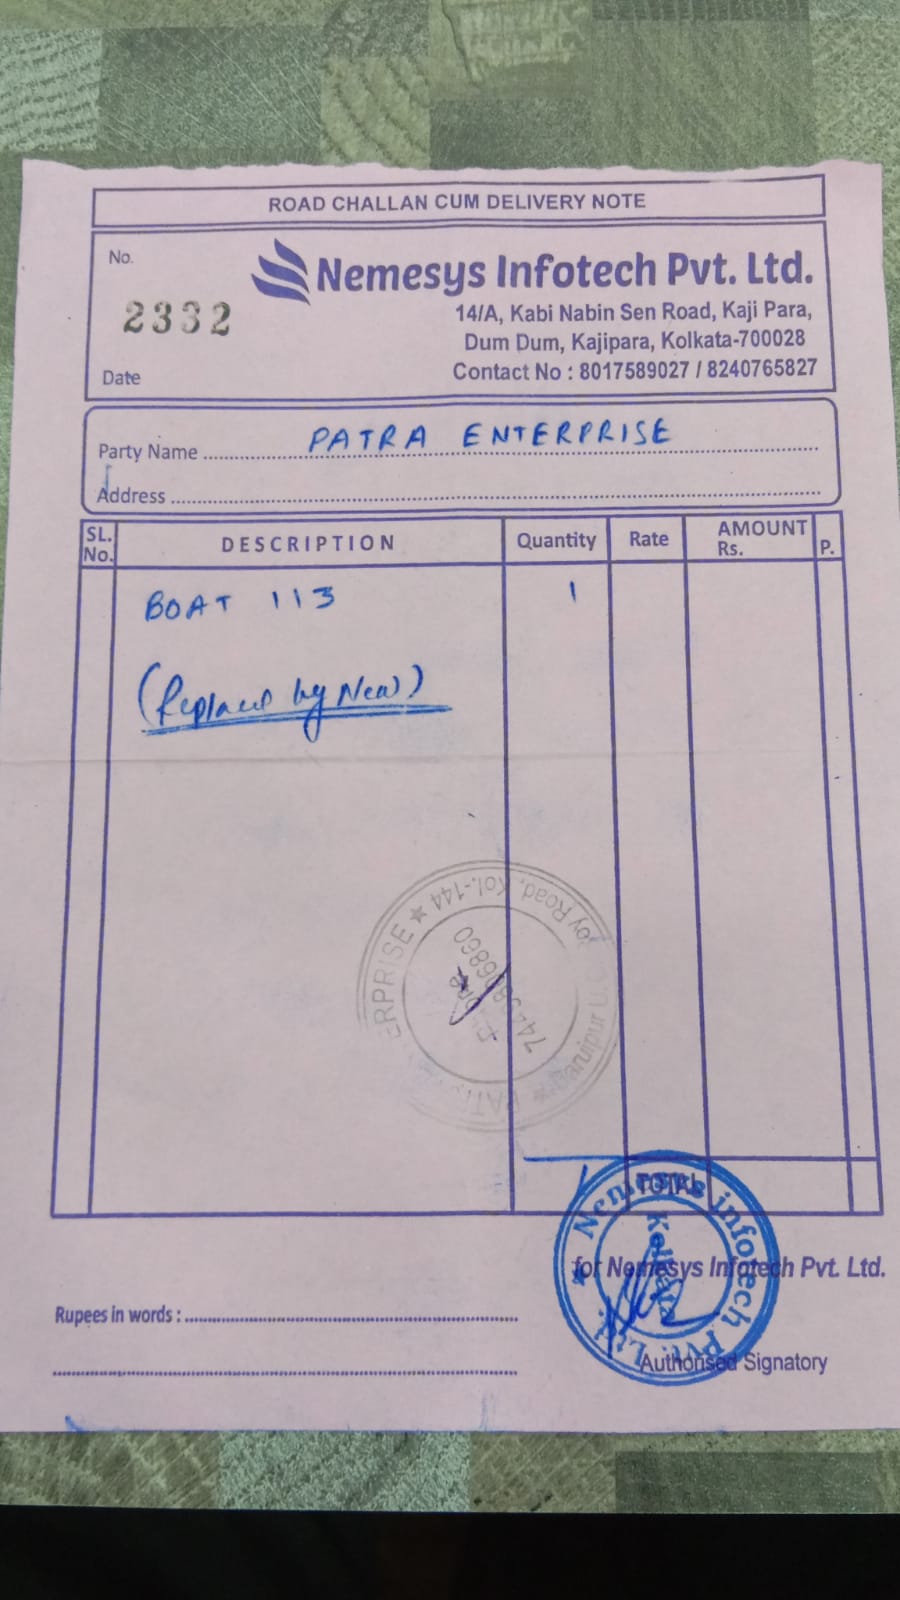 ROAD CHALLAN CUM DELIVERY NOTE
No.
2332
Nemesys Infotech Pvt. Ltd.
14/A, Kabi Nabin Sen Road, Kaji Para,
Dum Dum, Kajipara, Kolkata-700028
Contact No : 8017589027 / 8240765827
Date
Party Name PATRA ENTERPRISE
Address
SL. No. DESCRIPTION Quantity Rate AMOUNT Rs. P.
BOAT 113 1
(Replace by New)
ERPRISE ★ oy Road, Kol.-144
Baruipur
TOTAL 1
Nemesys Infotech Pvt. Ltd. ★
Kolkata
for Nemesys Infotech Pvt. Ltd.
Rupees in words :
Authorised Signatory